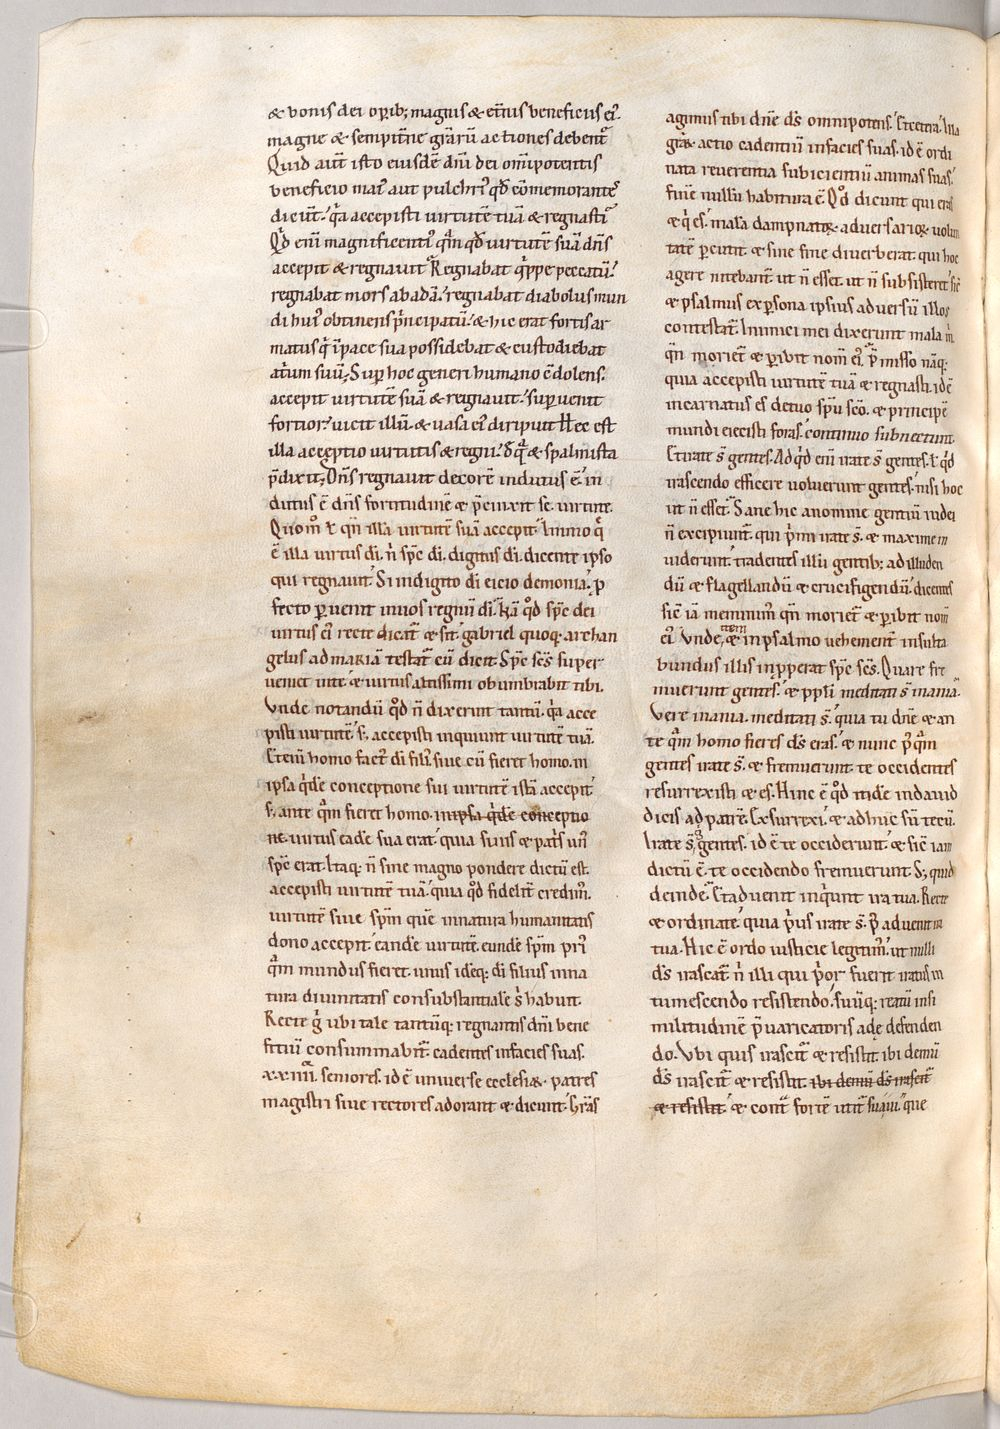 & bonis dei opib; magnis & et̄nis beneficiis ei᾽.
magne & sempit̄ne gr̄arū actiones debent᷑
Quid aut̄ isto eiusdē dn̄i dei om̄ipotentis
beneficio mai᾽ aut pulchri᾽ qd̄ cōmemorantes
dicūt. q̄a accepisti uirtutē tuā & regnasti.
Qd̄ eni magnificenti᾽ qm̄ qd̄ uirtutē suā dn̄s
accepit & regnauit. Regnabat q̄ppe peccatū.
regnabat mors ab adā. regnabat diabolus mun
di hui᾽ obtinens p̄ncipatū. & hic erat fortis ar
matus q̇ ī pace sua possidebat & custodiebat
at̄um suū; Sup hoc generi humano ē dolens.
accepit uirtutē suā & reignauit. superuenit
fortior. uicit illū. & uasa ei᾽ diripuit. Hec est
illa acceptio uirtutis & regni. d̄ q̄ & spalmista
p̄dixit; Dn̄s regnauit decorē indutus ē. in
dutus ē dn̄s fortitudinē & p̄cinxit se uirtute.
Quom̊ ł qn̄ illa uirtutē suā accepit. Immo q̄
ē illa uirtus di. n̄ sp̄c di. digitus di. dicente ipso
qui regnauit. Si in digito di eicio demonia. p
fecto puenit in uos regnū di. Kā qd̊ sp̄c dei
uirtus ei᾽ recte dicat᷑ & sit. gabriel quoq; archan
gelus ad mariā testat᷑ cū dicit. Sp̄c sc̄s super
ueniet in te. & uirtus altissimi obumbrabit tibi.
Vnde notandū qd̊ n̄ dixerint tantū. q̄a acce
pisti uirtutē. s; accepisti inquiunt uirtutē tuā.
Eteni homo fact᾽ di fili᾽ siue cū fieret homo. in
ipsa q̇de conceptione sui uirtutē istā accepit.
s; ante qm̄ fieret homo. in ipsa q̇de conceptio
ne. uirtus eadē sua erat. quia suus & pat̄s un᾽
sp̄c erat. Itaq; n̄ sine magno pondere dictū est.
accepisti uirtutē tuā. quia qd̊ fidelit̄ credim᾽.
uirtutē siue sp̄m quē in natura humanitatis
dono accepit. eandē uirtutē. eundē sp̄m pri᾽
qm̄ mundus fieret. unus ideq; di filius in na
tura diuinitatis consubstantialē s̄ habuit.
Recte ḡ ubi tale tantūq; regnantis dn̄i bene
fitiū consummabit᷑. cadentes in facies suas.
xxiiii. seniores. id ē uniuerse ecclesiæ. patres
magistri siue rectores adorant & dicunt. Gr̄as
agimus tibi dn̄e ds̄ omnipotens. Et cetera. Illa
gr̄aꝝ actio cadentiū in facies suas. id ē ordi
nata reuerentia subicientiū animas suas.
finē nullū habitura ē. Qd̊ dicunt qui eras
& q̇ es. mala dampnatoꝝ aduersarioꝝ uolun
tatē pcutit. & sine fine diuerberat. qui hoc
agere nitebant᷑. ut n̄ esset. ut n̄ subsisteret. sic̄
& psalmus ex persona ipsius aduersū illos
contestat᷑. Inimici mei dixerunt mala m̄.
qn̄ moriet᷑ & pibit nom̄ ei᾽. p̄misso naq;
quia accepisti uirtutē tuā & regnasti. id ē
incarnatus es de tuo sp̄u sc̄o. & principē
mundi eiecisti foras. continuo subnectunt.
Et irate s̄ gentes. Ad qd̊ eni irate s̄ gentes. ł qd̊
irascendo efficere uoluerunt gentes. nisi hoc
ut n̄ esset᷑. Sane hic a nomine gentiū iudei
n̄ excipiunt᷑. qui ṗmi irate s̄. & maxime in
uiderunt. tradentes illū gentib; ad illuden
dū & flagellandū & crucifigendū. dicentes
sic̄ iā meminim᾽ qn̄ moriet᷑ & pibit nom̄
ei᾽. Vnde item & in psalmo uehement̄ insulta
bundus illis inpperat sp̄c sc̄s. Quare fre
muerunt gentes. & ppli meditati s̄ inania.
Vere inania. meditati s̄. quia tu dn̄e & an
te qm̄ homo fieres ds̄ eras. & nunc p᾽qm̄
gentes irate s̄. & fremuerunt. te occidentes
resurrexisti & es. Hinc ē qd̊ itidē in dauid
dicis ad patrē. Exsurrexi. & adhuc sū tecū.
Irate s̄ g gentes. id ē te occiderunt. & sic̄ iam
dictū ē. te occidendo fremuerunt. S; quid
deinde. Et aduenit inq̇unt ira tua. Recte
& ordinate. quia ṗus irate s̄. p᾽ aduenit ira
tua. Hic ē ordo iusticie legitim᾽. ut nulli
ds̄ irascat᷑ n̄ illi qui ṗor fuerit iratus in
tumescendo resistendo. suūq; reatū insi
militudinē p̄uaricatoris adę defenden
do. Vbi quis irascit᷑ & resistit. ibi demū
ds̄ irascit᷑ & resistit. ibi demū ds̄ irascit᷑
& resistit. & cont᷑ fortē utit᷑ sua ui. que